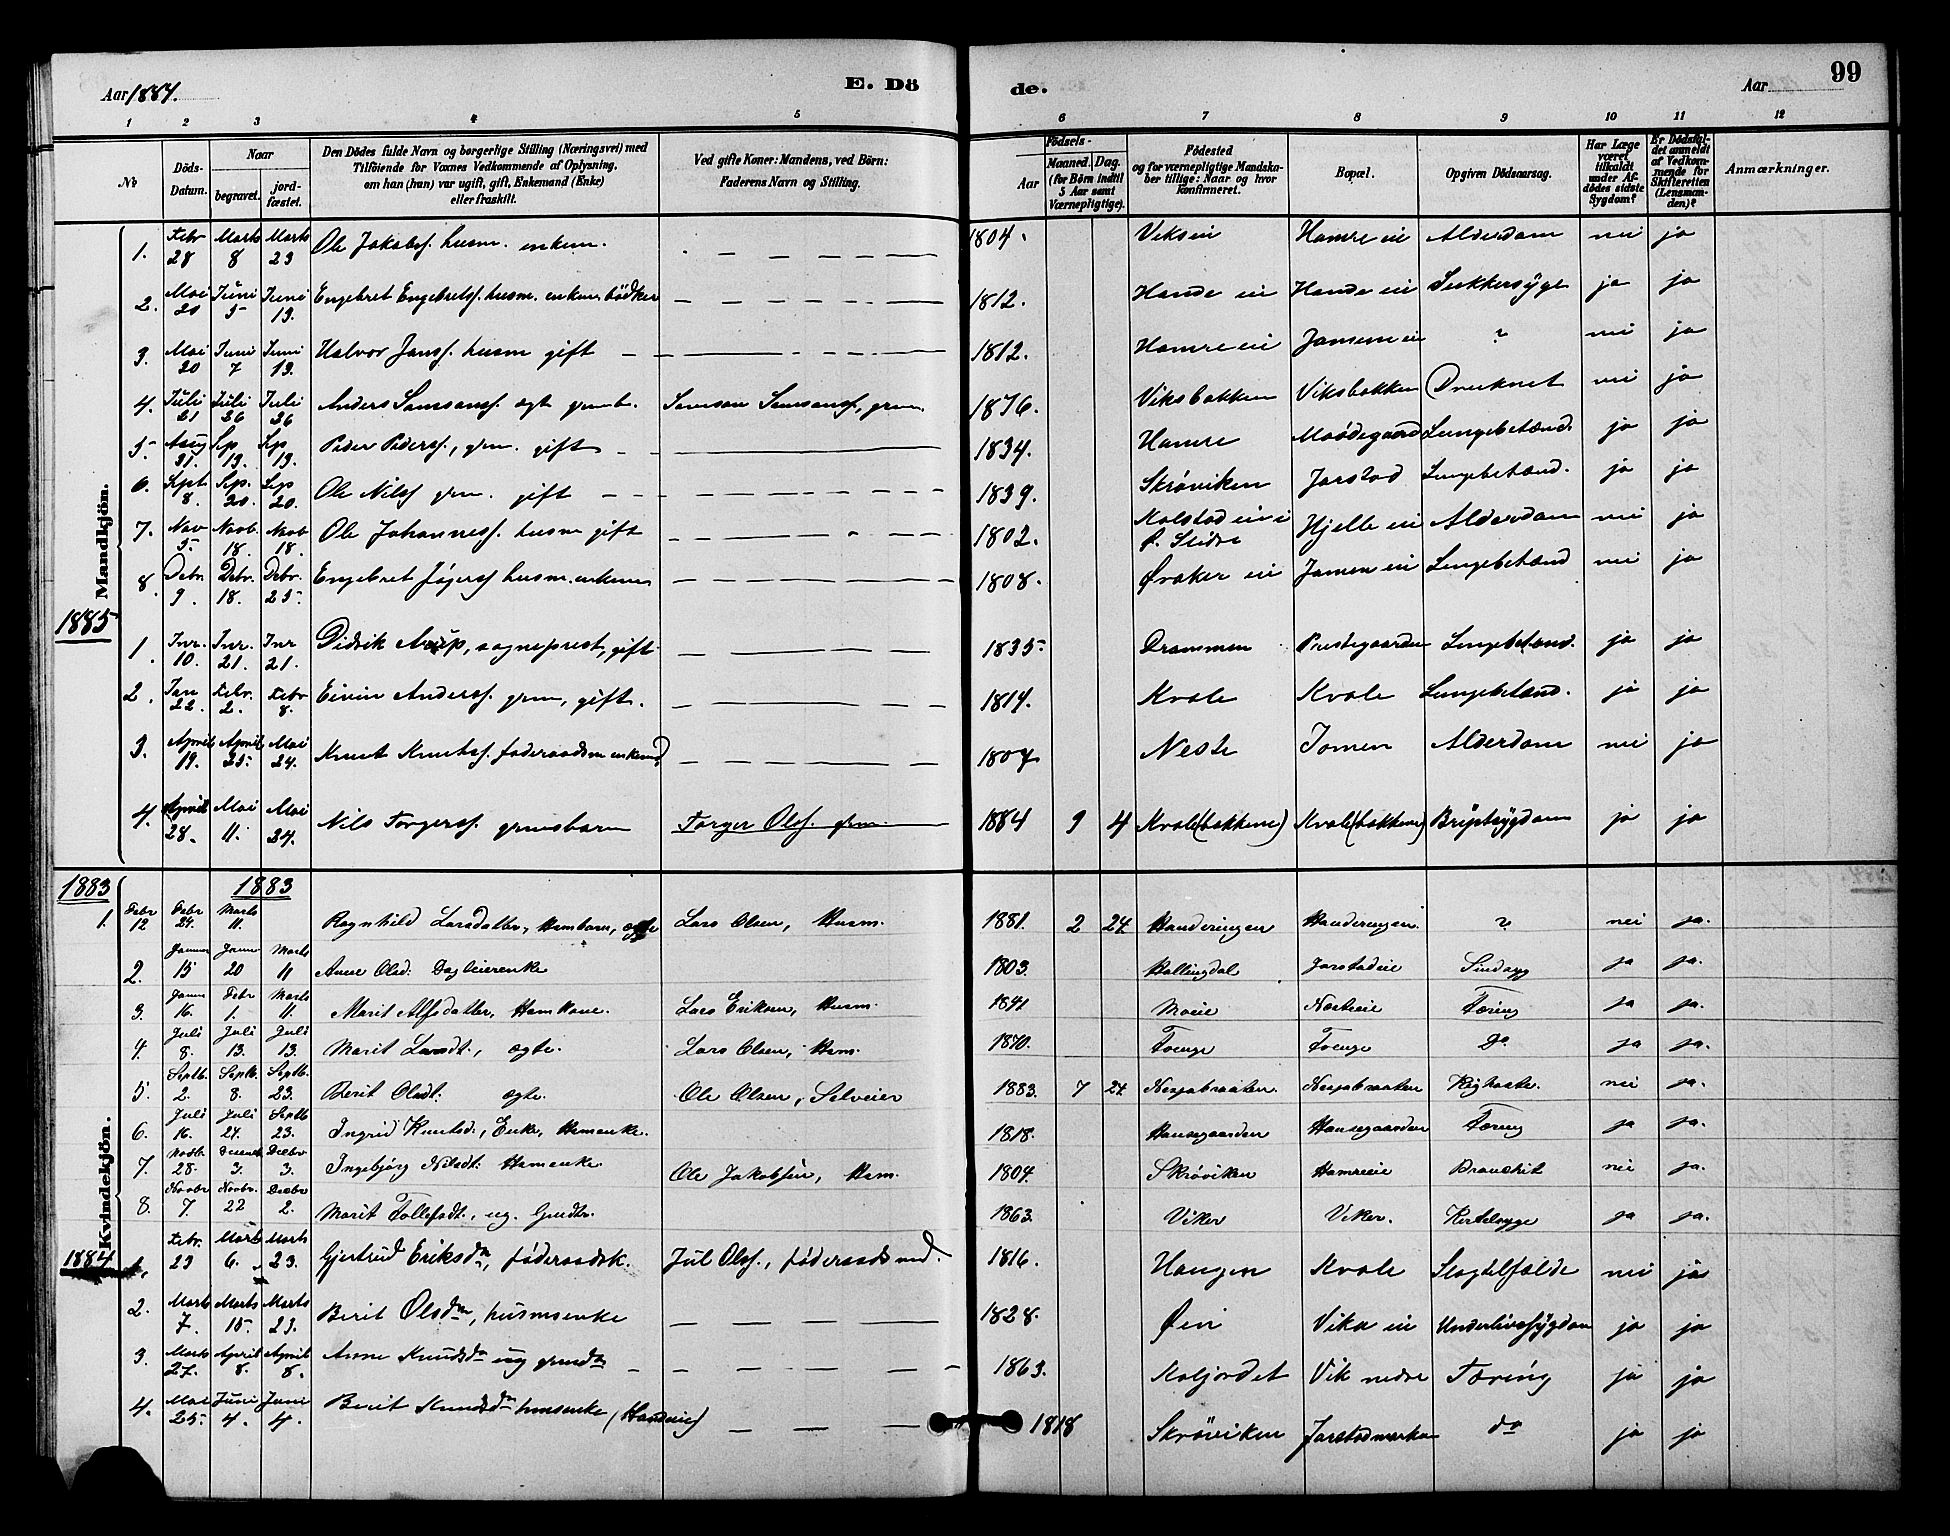 Aar 1884. E. Dö de. Aar 99
1 2 3 4 5 6 7 8 9 10 11 12
No Döds-Datum. Naar begravet. jord-fæstet. Den Dödes fulde Navn og borgerlige Stilling (Næringsvei) med Tilföiende for Voxnes Vedkommende af Oplysning, om han (hun) var ugift, gift, Enkemand (Enke) eller fraskilt. Ved gifte Koner: Mandens, ved Börn: Faderens Navn og Stilling. Födsels- Aar Maaned. Dag. (for Börn indtil 5 Aar samt Værnepligtige). Födested og for værnepligtige Mandskaber tillige: Naar og hvor konfirmeret. Bopæl. Opgiven Dödsaarsag. Har Læge været tilkaldt under Afdödes sidste Sygdom? Er Dödsfaldet anmeldt af Vedkommende for Skifteretten (Lensmanden)? Anmærkninger.
Mandkjön.
1. Febr 28 Marts 8 Marts 23 Ole Jakobsf. husm. enkem. 1804. Viks ei Hamre ei Alderdom nei ja
2. Mai 20 Juni 5 Juni 19. Engebret Engebretsf. husm. enkem. bödker 1812. Hande ei Hande ei Sukkersyge ja ja
3. Mai 20 Juni 7 Juni 19. Halvor Jansf. husm gift 1812. Hamre ei Jomen ei ? nei ja
4. Juli 21 Juli 26 Juli 26 Anders Samsonsf. ægt grmb. Samson Samsonsf, grm. 1876. Viksbakken Viksbakken Druknet nei ja
5. Aug 31. Sep. 19. Sep. 19. Peder Pedersf., grm. gift 1834. Hamre Moödegaard Lungebetænd. ja ja
6. Sept 8. Sep. 20. Sep 20. Ole Nilsf grm. gift 1839. Skröviken Jarstad Lungebetænd. ja ja
7. Nov 5. Novb. 18. Novb 18. Ole Johannesf. husm gift 1802. Kolstad ei i Ø. Slidre Hjelle ei Alderdom nei ja
8. Debr. 9. Debr. 18. Debr. 25. Engebret Jögersf husm. enkem 1808. Øvaker ei Jomen ei Lungebetænd nei ja
1885
1. Jnr. 10. Jnr. 21. Jnr 21. Didrik Arup, sogneprest, gift. 1835 Drammen Prestegaarden Lungebetænd. ja ja
2. Jan 22. Febr. 2. Febr 8. Eivin Andersf. grm, gift. 1814. Kvale Kvale Lungebetænd. ja ja
3. April 19. April 25. Mai 24. Knut Knutsf. föderaadsm enkemd 1804 Neste Jomen Alderdom nei ja
4. April 28. Mai 11. Mai 24. Nils Torgersf. grmsbarn Torger Olsf. grm. 1884 9 4 Kvale (bakkene) Kvale (bakkene) Brystsygdom ja ja
1883 1883
Kvindekjön.
1. Febr 12 Febr 24. Marts 11. Ragnhild Larsdatter, Hsmbarn, ægte Lars Olsen, Husm. 1881. 2 24 Handeringen Handeringen. ? nei ja.
2. Januar 15 Januar 20 Marts 11 Anne Olsd. Dagleierenke 1803. Hallingdal Jarstadeie Sindsyg ja ja.
3. Januar 16. Febr 1. Marts 11. Marit Alfsdatter, Hsmkone. Lars Eriksen, Husm. 1841 Moeie Nesteeie Tæring ja ja.
4. Juli 8. Juli 13. Juli 13. Marit Larsdt., ægte. Lars Olsen, Hsm. 1870. Toenge Toenge Do ja ja.
5. Septb. 2. Septb. 8. Septb. 23. Berit Olsdt. ægte. Ole Olsen, Selveier 1883. 7 24 Nesjabraaten. Nesjabraaten Kighoste. nei ja.
6. Juli 16. Juli 24. Septb 23. Ingrid Knutsd., Enke, Hsmenke. 1818. Hansegaarden Hansegaarden Tæring ja ja.
7. Novb. 28. 3. Decbr 3. Ingebjörg Nilsdt. Hsmenke. Ole Jakobsen, Hsm. 1804. Skröviken Hamreeie nei ja.
8. Novbr 7. Novbr. 22 Decbr 2. Marit Tollefsdt., ug. Gmdtr. 1863. Viker Viker. Kertelsyge ja ja.
1884
1. Febr. 23 Marts 6. Marts 23. Gjertrud Eriksdn, föderaadsk. Jul Olsf., föderaadsmd. 1816. Haugen Kvale Slagtilfælde nei ja
2. Marts 7. Marts 15. Marts 23. Berit Olsdn, husmsenke 1828. Øen Vika ei Underlivssygdom ja ja
3. Marts 27. April 8. April 8. Anne Knudsdn ug grmdn 1863. Koljordet Vik nedre Tæring ja ja
4. Mai 25. Juni 4. Juni 4. Berit Knudsdn husmenke (Handeie) 1818 Skröviken Jarstadmarka do ja ja